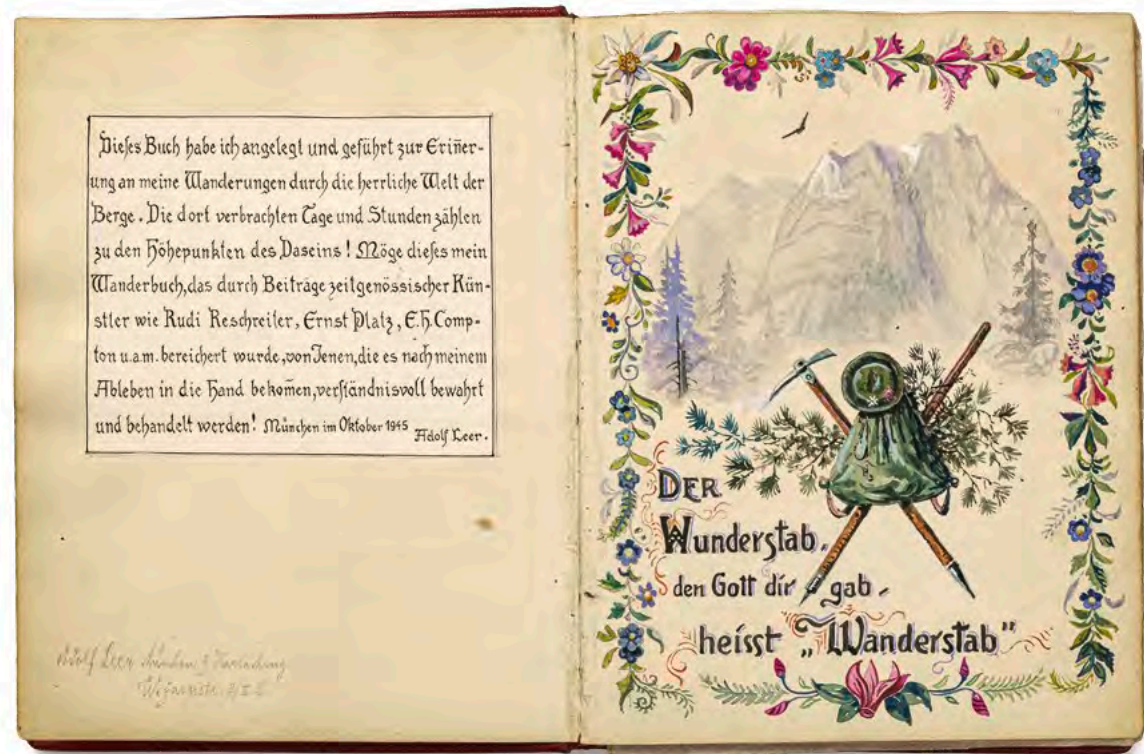 Dieses Buch habe ich angelegt und geführt zur Erin̄er-
ung an meine Wanderungen durch die herrliche Welt der
Berge. Die dort verbrachten Tage und Stunden zählen
zu den Höhepunkten des Daseins! Möge dieses mein
Wanderbuch, das durch Beiträge zeitgenössischer Kün-
stler wie Rudi Reschreiter, Ernst Platz, E.H. Comp-
ton u.a.m. bereichert wurde, von Jenen, die es nach meinem
Ableben in die Hand bekom̄en, verständnisvoll bewahrt
und behandelt werden! München im Oktober 1945
Adolf Leer.
Adolf Leer München
DER
Wunderstab,
den Gott dir gab,
heisst „Wanderstab"